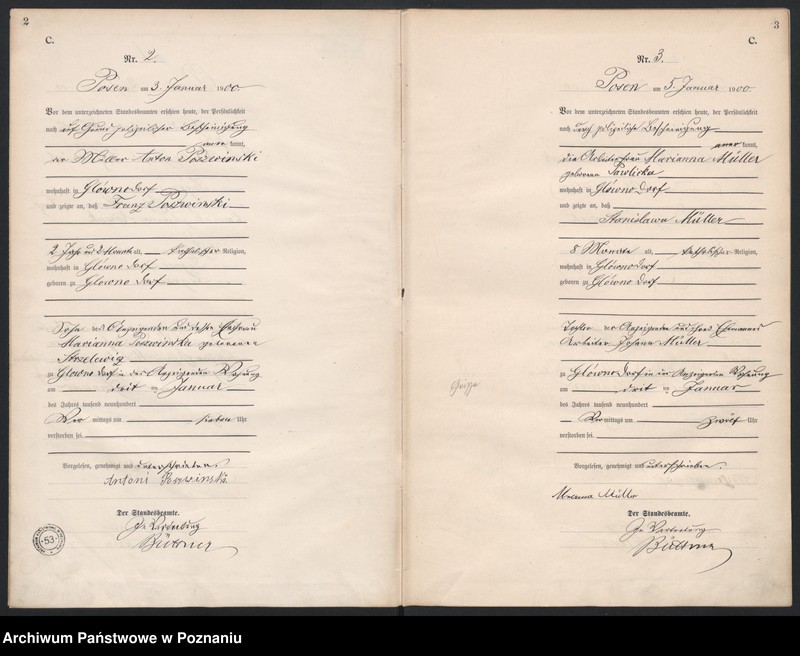 2
C.
Nr. 2.
Posen am 3. Januar 1900.
Vor dem unterzeichneten Standesbeamten erschien heute, der Persönlichkeit
nach auf Grund polizeilicher Bescheinigung
kannt,
der Anton
wohnhaft in Glowno Dorf
und zeigte an, daß Franz
2 Jahr und 2 Monate alt, katholischer Religion,
wohnhaft in Glowno Dorf
geboren zu Glowno Dorf
Sohn des Anzeigenden und dessen Ehefrau
Marianna geborenen
zu Glowno Dorf in der Anzeigenden Wohnung
am drit ten Januar
des Jahres tausend neunhundert
Vor mittags um sieben Uhr
verstorben sei.
Vorgelesen, genehmigt und unterschrieben.
Antoni
Der Standesbeamte.
In Vertretung
Büttner
53
3
C.
Nr. 3.
Posen am 5. Januar 1900.
Vor dem unterzeichneten Standesbeamten erschien heute, der Persönlichkeit
nach durch polizeiliche Bescheinigung
kannt,
die Arbeiterfrau Marianna Müller
geborene Pawlicka
wohnhaft in Glowno Dorf
und zeigte an, daß
Stanislawa Müller
8 Monate alt, katholischer Religion,
wohnhaft in Glowno Dorf
geboren zu Glowno Dorf
Tochter der Anzeigenden und ihres Ehemannes
Arbeiter Johann Müller
zu Glowno Dorf in der Anzeigenden Wohnung
am drit ten Januar
des Jahres tausend neunhundert
Vor mittags um zwölf Uhr
verstorben sei.
Vorgelesen, genehmigt und unterschrieben.
Müller
Der Standesbeamte.
In Vertretung
Büttner
Archiwum Państwowe w Poznaniu